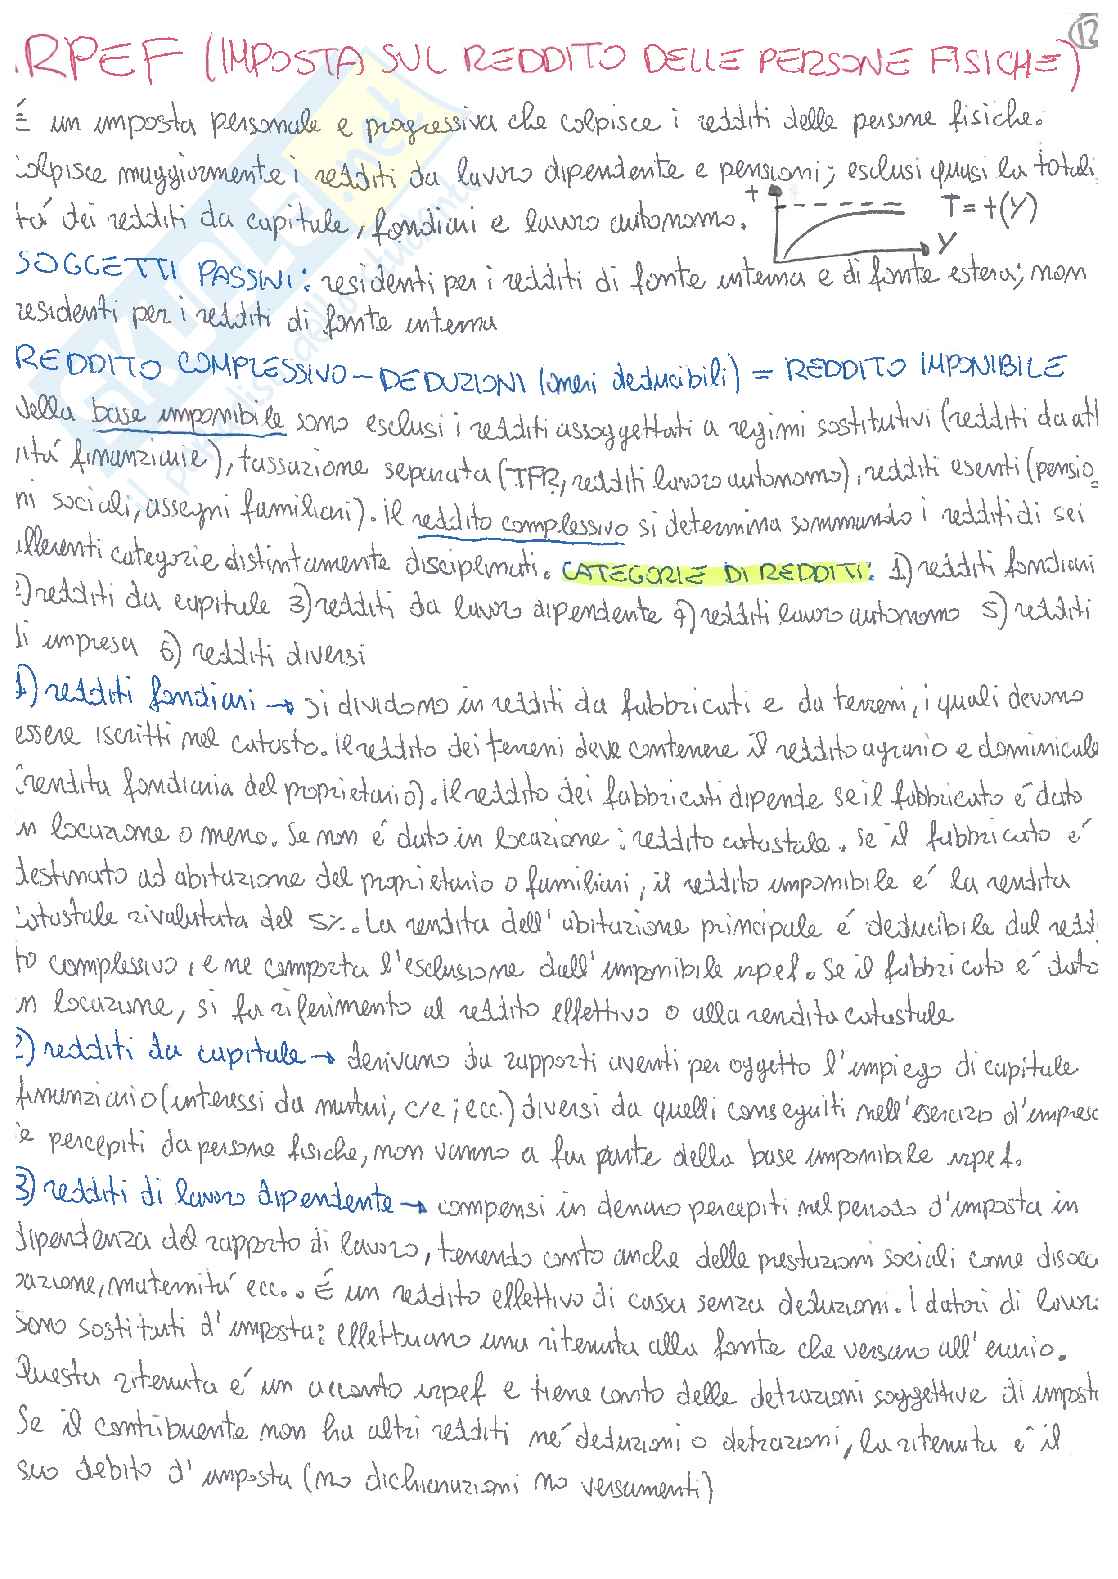 12
.RPEF (IMPOSTA SUL REDDITO DELLE PERSONE FISICHE)
É un imposta personale e progressiva che colpisce i redditi delle persone fisiche.
colpisce maggiormente i redditi da lavoro dipendente e pensioni; esclusi quasi la totali
tá dei redditi da capitale, fondiari e lavoro autonomo. t T=t(Y)
Y
SOGGETTI PASSIVI: residenti per i redditi di fonte interna e di fonte estera; non
residenti per i redditi di fonte interna
REDDITO COMPLESSIVO - DEDUZIONI (oneri deducibili) = REDDITO IMPONIBILE
Nella base imponibile sono esclusi i redditi assoggettati a regimi sostitutivi (redditi da att
ivitá finanziarie), tassazione separata (TFR, redditi lavoro autonomo), redditi esenti (pensio
ni sociali, assegni familiari). il reddito complessivo si determina sommando i redditi di sei
differenti categorie distintamente disciplinati. CATEGORIE DI REDDITI: 1) redditi fondiari
2) redditi da capitale 3) redditi da lavoro dipendente 4) redditi lavoro autonomo 5) redditi
di impresa 6) redditi diversi
1) redditi fondiari → si dividono in redditi da fabbricati e da terreni, i quali devono
essere iscritti nel catasto. il reddito dei terreni deve contenere il reddito agrario e dominicale
(rendita fondiaria del proprietario). il reddito dei fabbricati dipende se il fabbricato é dato
in locazione o meno. Se non é dato in locazione: reddito catastale. Se il fabbricato é
destinato ad abitazione del proprietario o familiari, il reddito imponibile é la rendita
catastale rivalutata del 5%. La rendita dell'abitazione principale é deducibile dal reddi
to complessivo, e ne comporta l'esclusione dall'imponibile irpef. Se il fabbricato é dato
in locazione, si fa riferimento al reddito effettivo o alla rendita catastale
2) redditi da capitale → derivano da rapporti aventi per oggetto l'impiego di capitale
finanziario (interessi da mutui, c/c; ecc.) diversi da quelli conseguiti nell'esercizo d'impresa
e percepiti da persone fisiche, non vanno a far parte della base imponibile irpef.
3) redditi di lavoro dipendente → compensi in denaro percepiti nel periodo d'imposta in
dipendenza del rapporto di lavoro, tenendo conto anche delle prestazioni sociali come disoccu
pazione, maternitá ecc.. É un reddito effettivo di cassa senza deduzioni. I datori di lavoro
sono sostituti d'imposta: effettuano una ritenuta alla fonte che versano all'erario.
Questa ritenuta é un acconto irpef e tiene conto delle detrazioni soggettive di imposta
Se il contribuente non ha altri redditi né deduzioni o detrazioni, la ritenuta é il
suo debito d'imposta (no dichiarazioni no versamenti)